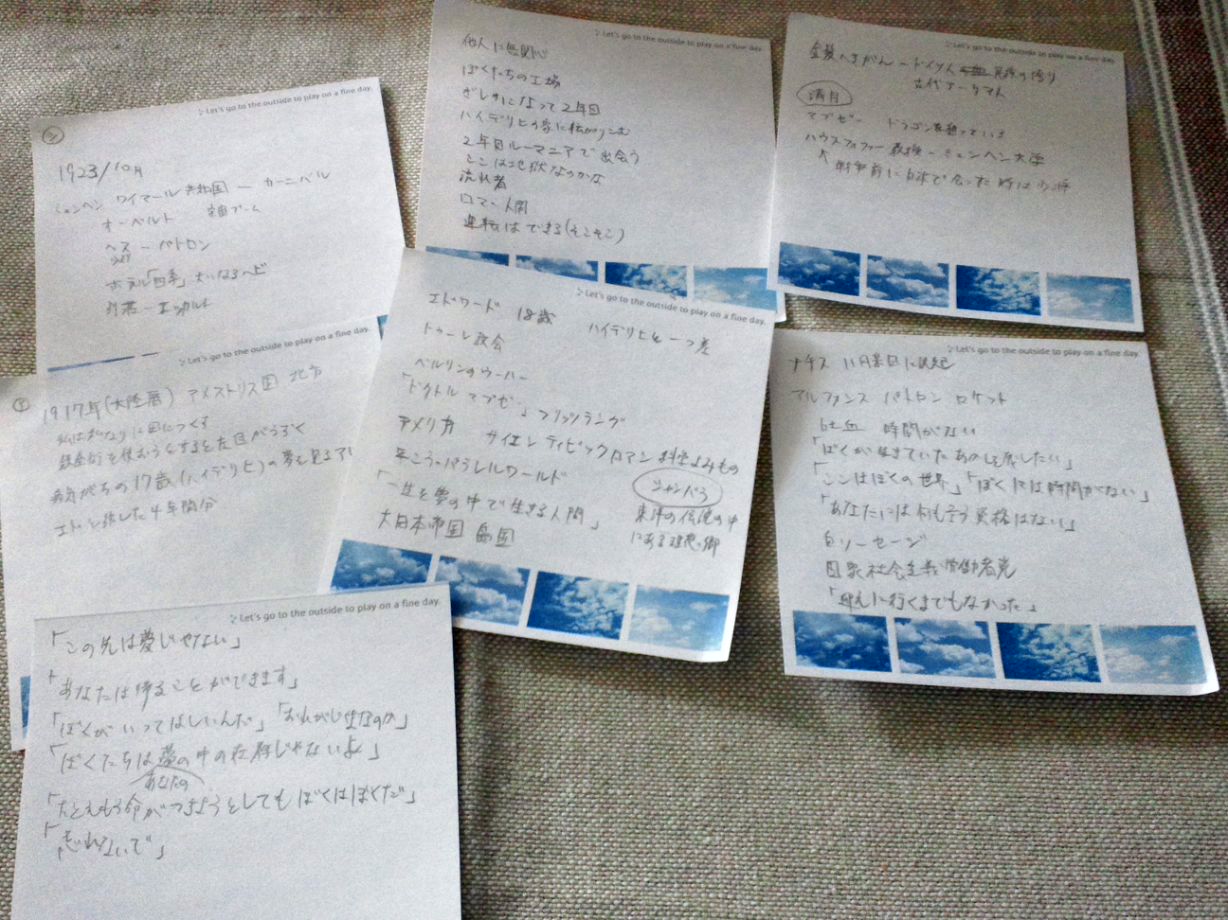 Let's go to the outside to play on a fine day.
②
1923/10月
ミュンヘン ワイマール共和国 ー カーニバル
オーベルト 宇宙ブーム
ヘス ー パトロン
ホテル「四季」大いなるヘビ
ー エッカルト
Let's go to the outside to play on a fine day.
①
1917年(大陸暦) アメストリス国 北方
錬金術を使おうとすると左目がうずく
病気がちの17歳(ハイデリヒ)の夢を見るアル
エドと旅した4年間分
Let's go to the outside to play on a fine day.
他人に無関心
ぼくたちの工場
ぎしゅになって2年目
ハイデリヒの家に転がりこむ
2年目ルーマニアで出会う
ここは地獄なのかな
流れ者
ロマー人間
運転はできる(そこそこ)
Let's go to the outside to play on a fine day.
金髪へきがんードイツ人 の誇り
古代アーリア人
満月
マブゼー ドラゴンを追っている
ハウスフォファー教授ーミュンヘン大学
Let's go to the outside to play on a fine day.
エドワード 18歳 ハイデリヒと一つ差
トゥーレ協会
ベルリンのウーハー
「ドクトル マブゼ」フリッツラング
アメリカ サイエンティピックロマン 科学よみもの
平こうーパラレルワールド
シャンバラ
「一生を夢の中で生きる人間」
東洋の伝説の中にある理想郷
大日本帝国 島国
Let's go to the outside to play on a fine day.
ナチス 11月8日に決起
アルフォンス パトロン ロケット
吐血 時間がない
「ぼくが生きていたあかしを残したい」
「ここはぼくの世界」「ぼくには時間がない」
「あなたには何も言う資格はない」
白ソーセージ
国家社会主義労働者党
「迎えに行くまでもなかった」
Let's go to the outside to play on a fine day.
「この先は夢じゃない」
「あなたは帰ることができます」
「ぼくがいってほしいんだ」「おれがじゃまなのか」
「ぼくたちは夢の中の存在じゃないよ」
あなたの
「たとえもう命がつきようとしてもぼくはぼくだ」
「忘れないで」